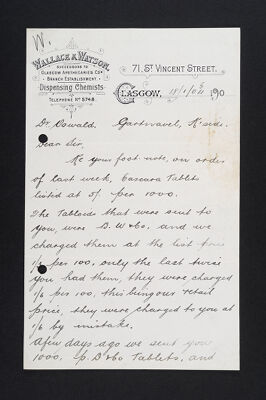 W.
WALLACE & WATSON,
SUCCESSORS TO
GLASGOW APOTHECARIES CO'S
BRANCH ESTABLISHMENT.
Dispensing Chemists
TELEPHONE No 5748.
71, ST VINCENT STREET.
GLASGOW, 190
Dr. Oswald.
Gartnavel, K'side.
Dear Sir,
Re your foot note, on order
of last week, Cascara Tablets
listed at 5/ per 1000.
The Tabloids that were sent to
you, were B. W & Co. and we
charged them at the list price
1/2 per 100, only the last twice
you had them, they were charged
1/6 per 100, this being our retail
price, they were charged to you at
1/6 by mistake.
A few days ago we sent you
1000. P. D & Co Tablets, and